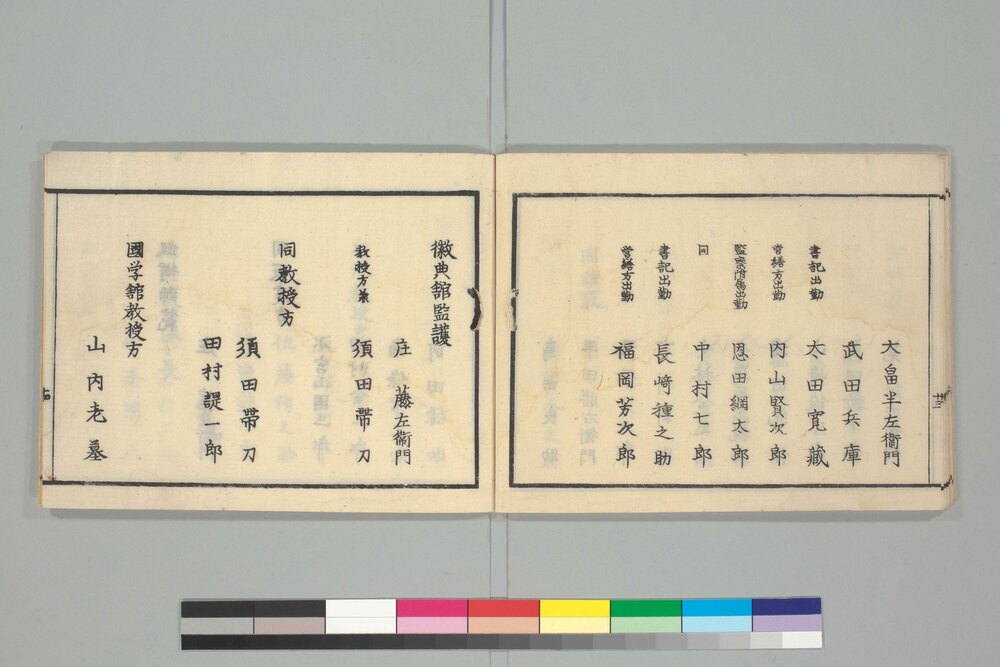 大畠半左衞門
武田兵庫
書記出勤
太田寛藏
営繕方出勤
内山賢次郎
監察附属出勤
恩田綱太郎
同
中村七郎
書記出勤
長﨑種之助
営繕方出勤
福岡芳次郎
徽典舘監護
庄藤左衞門
教授方兼
須田帶刀
同教授方
須田帶刀
田村諟一郎
國学舘教授方
山内老墓